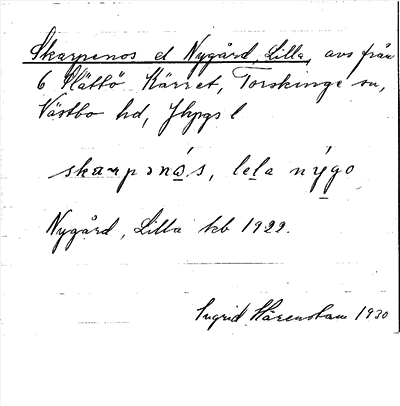 Skarpenos el Nygård, Lilla, avs från
6 Slättö Kärret, Torskinge sn,
Västbo hd, Jkpgs l
skarpɔnɑ́s, lela nýgo
Nygård, Lilla kb 1922.
Ingrid Härenstam 1930